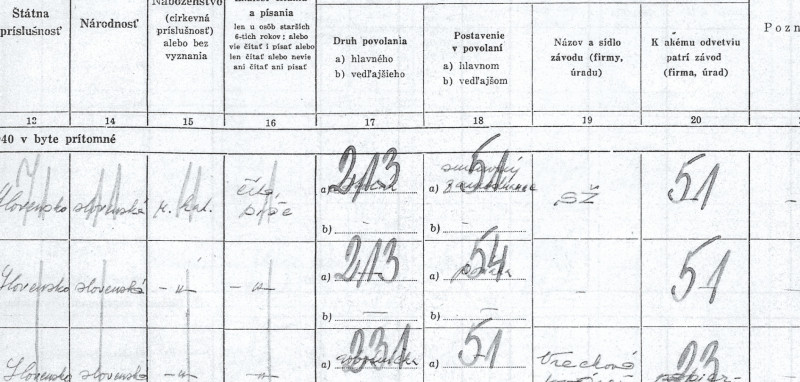 Štátna
príslušnosť
Národnosť
Náboženstvo
(cirkevná
príslušnosť)
alebo bez
vyznania
a písania
len u osôb starších
6-tich rokov; alebo
vie čítať i písať alebo
len čítať alebo nevie
ani čítať ani písať
Druh povolania
a) hlavného
b) vedľajšieho
Postavenie
v povolaní
a) hlavnom
b) vedľajšom
Názov a sídlo
závodu (firmy,
úradu)
K akému odvetviu
patrí závod
(firma, úrad)
Pozn
13 14 15 16 17 18 19 20
940 v byte prítomné
Slovensko slovenská r. kat. číta píše a) 213 a) 51 SŽ 51 –
b) – b) –
Slovensko slovenská –"– –"– a) 213 a) 54 – 51
b) — b) —
Slovensko slovenská –"– –"– a) 231 a) 51 23